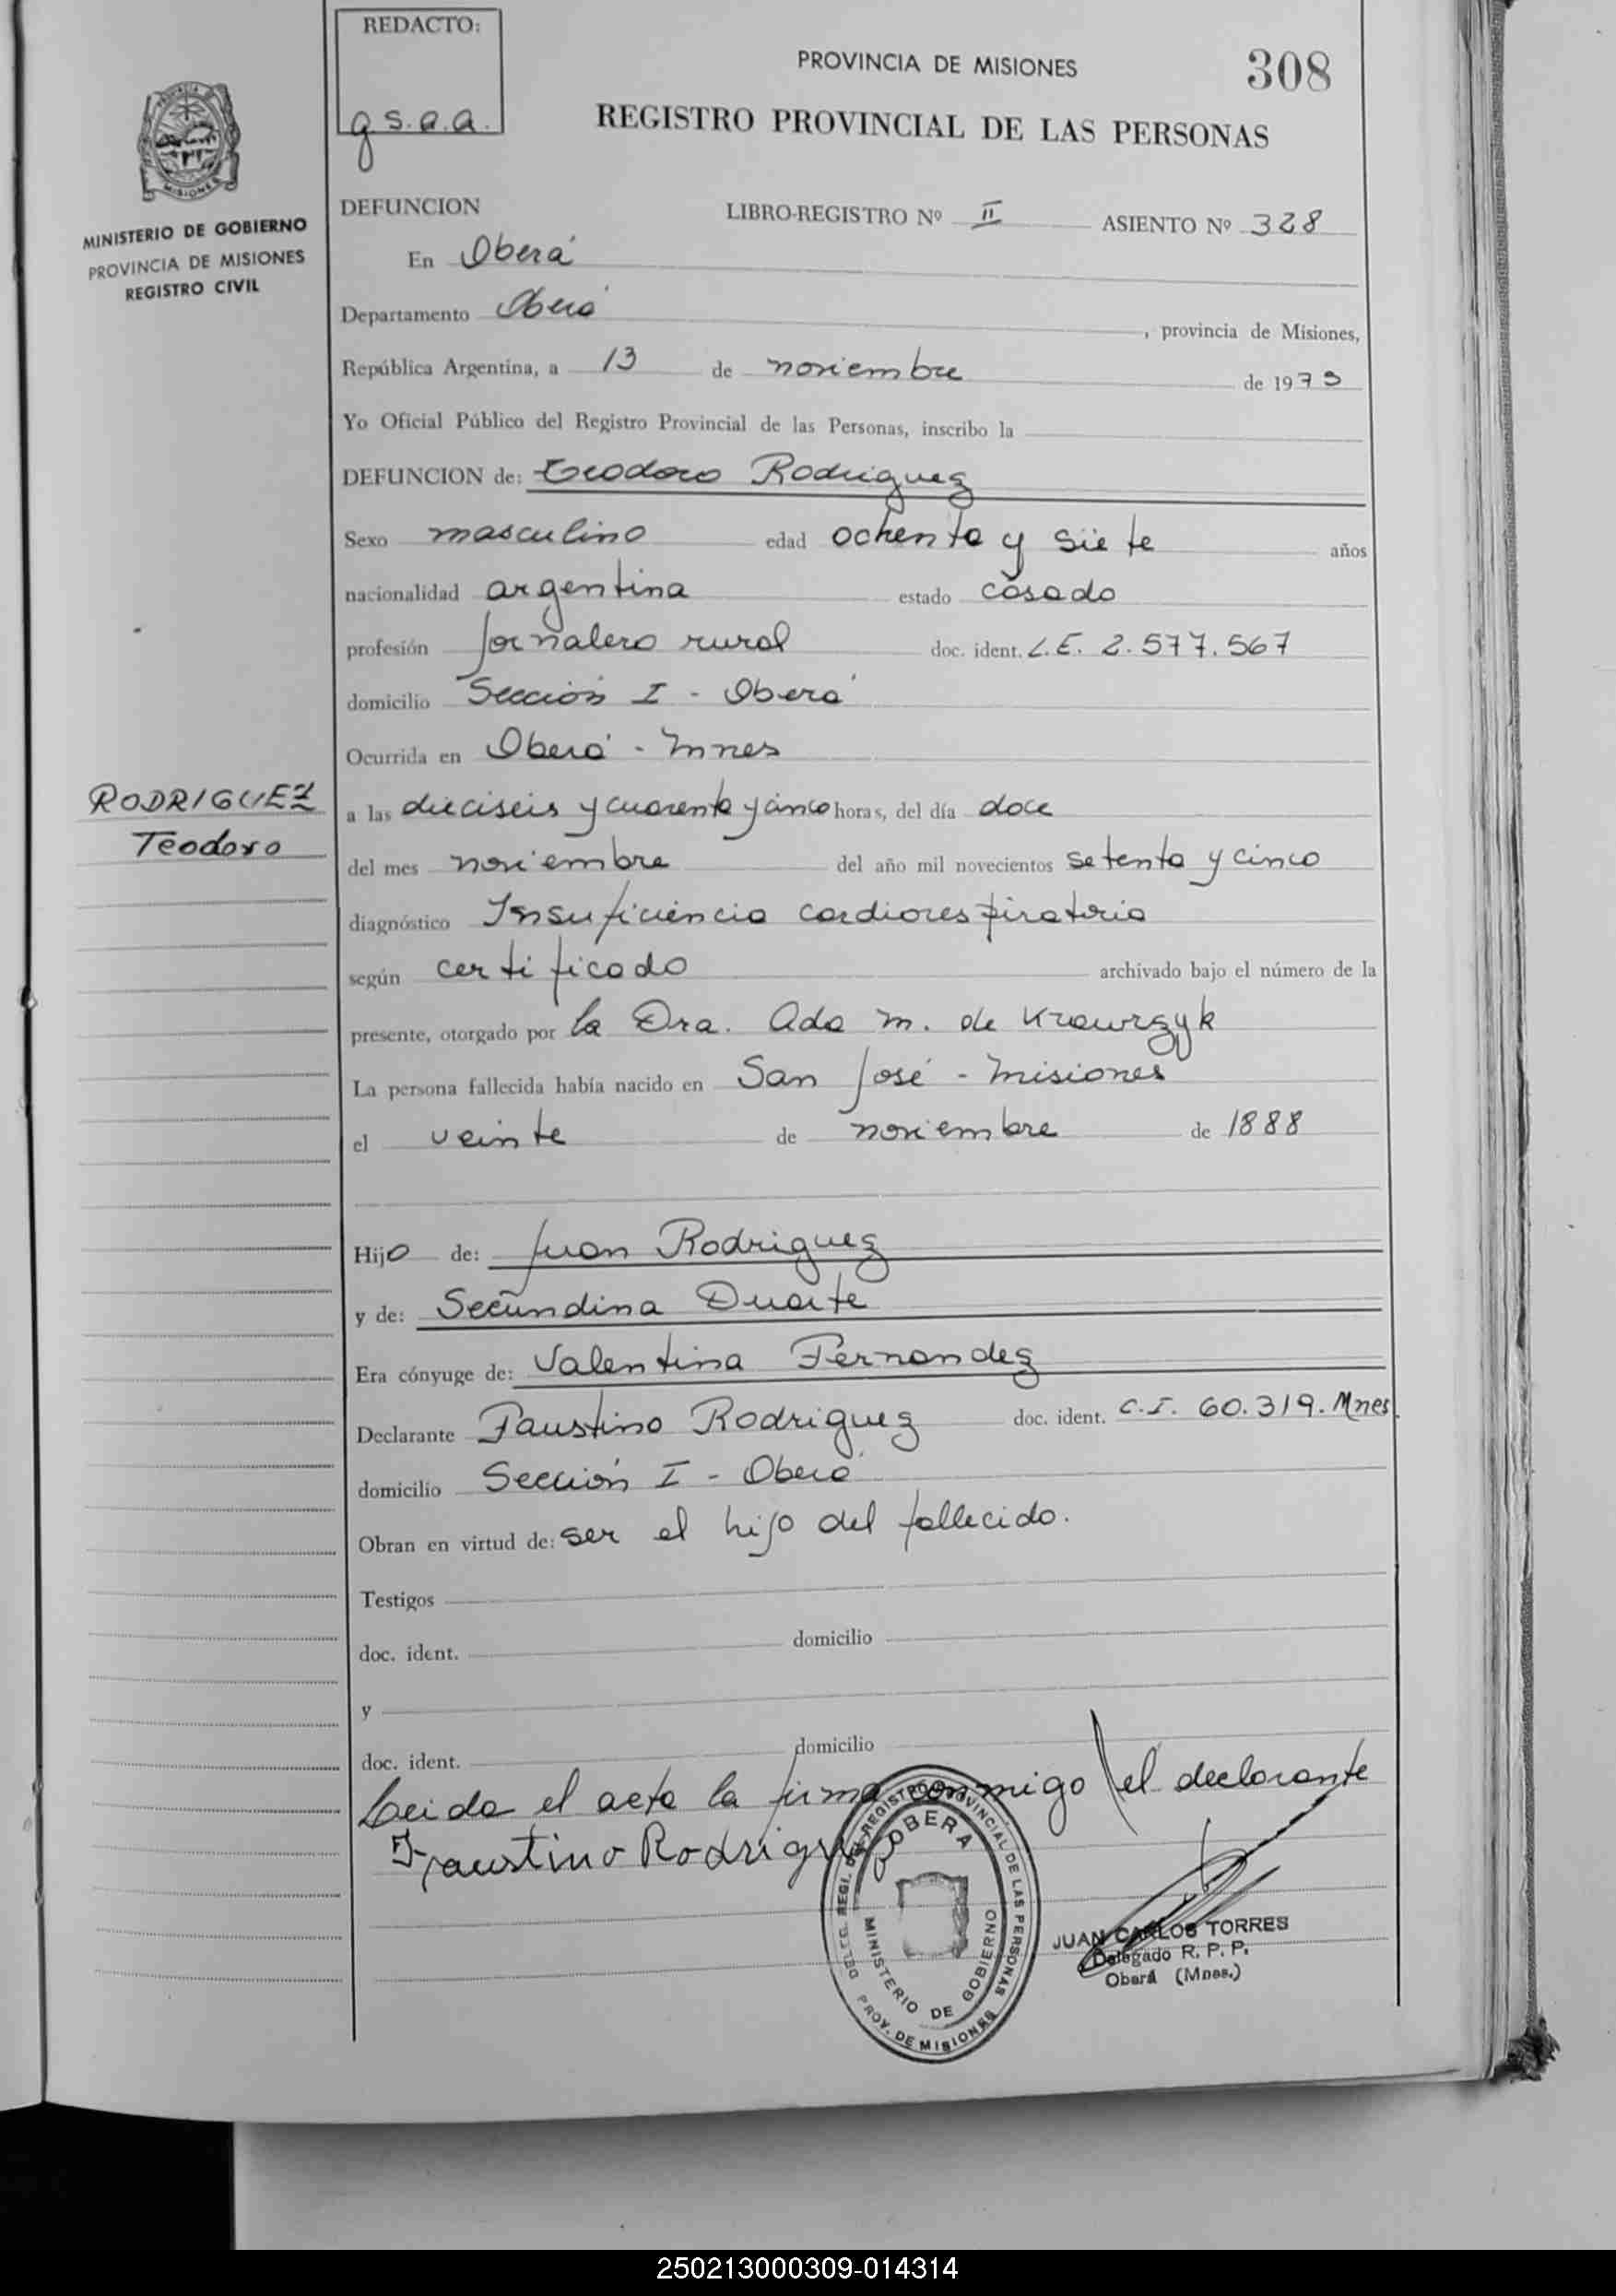 REDACTO:
g s.a.a.
PROVINCIA DE MISIONES
308
REGISTRO PROVINCIAL DE LAS PERSONAS
MISIONES
MINISTERIO DE GOBIERNO
PROVINCIA DE MISIONES
REGISTRO CIVIL
DEFUNCION LIBRO-REGISTRO Nº II ASIENTO Nº 328
En Oberá
Departamento Oberá , provincia de Misiones,
República Argentina, a 13 de noviembre de 1975
Yo Oficial Público del Registro Provincial de las Personas, inscribo la
DEFUNCION de: Teodoro Rodriguez
Sexo masculino edad ochenta y siete años
nacionalidad argentina estado casado
profesión Jornalero rural doc. ident. L.E. 2.577.567
domicilio Sección I - Oberá
Ocurrida en Oberá - Mnes
RODRIGUEZ
Teodoro
a las dieciseis y cuarenta y cinco horas, del día doce
del mes noviembre del año mil novecientos setenta y cinco
diagnóstico Insuficiencia cardiorespiratoria
según certificado archivado bajo el número de la
presente, otorgado por la Dra. Ada M. de Krawczyk
La persona fallecida había nacido en San José - Misiones
el veinte de noviembre de 1888
Hijo de: Juan Rodriguez
y de: Secundina Duarte
Era cónyuge de: Valentina Fernandez
Declarante Faustino Rodriguez doc. ident. C.I. 60.319. Mnes
domicilio Sección I - Oberá
Obran en virtud de: ser el hijo del fallecido.
Testigos
doc. ident. domicilio
y
doc. ident. domicilio
Leida el acta la firma conmigo el declarante
Faustino Rodriguez
OBERA
MINISTERIO DE GOBIERNO
REGISTRO PROVINCIAL DE LAS PERSONAS
PROV. DE MISIONES
JUAN CARLOS TORRES
Delegado R. P. P.
Oberá (Mnes.)
250213000309-014314